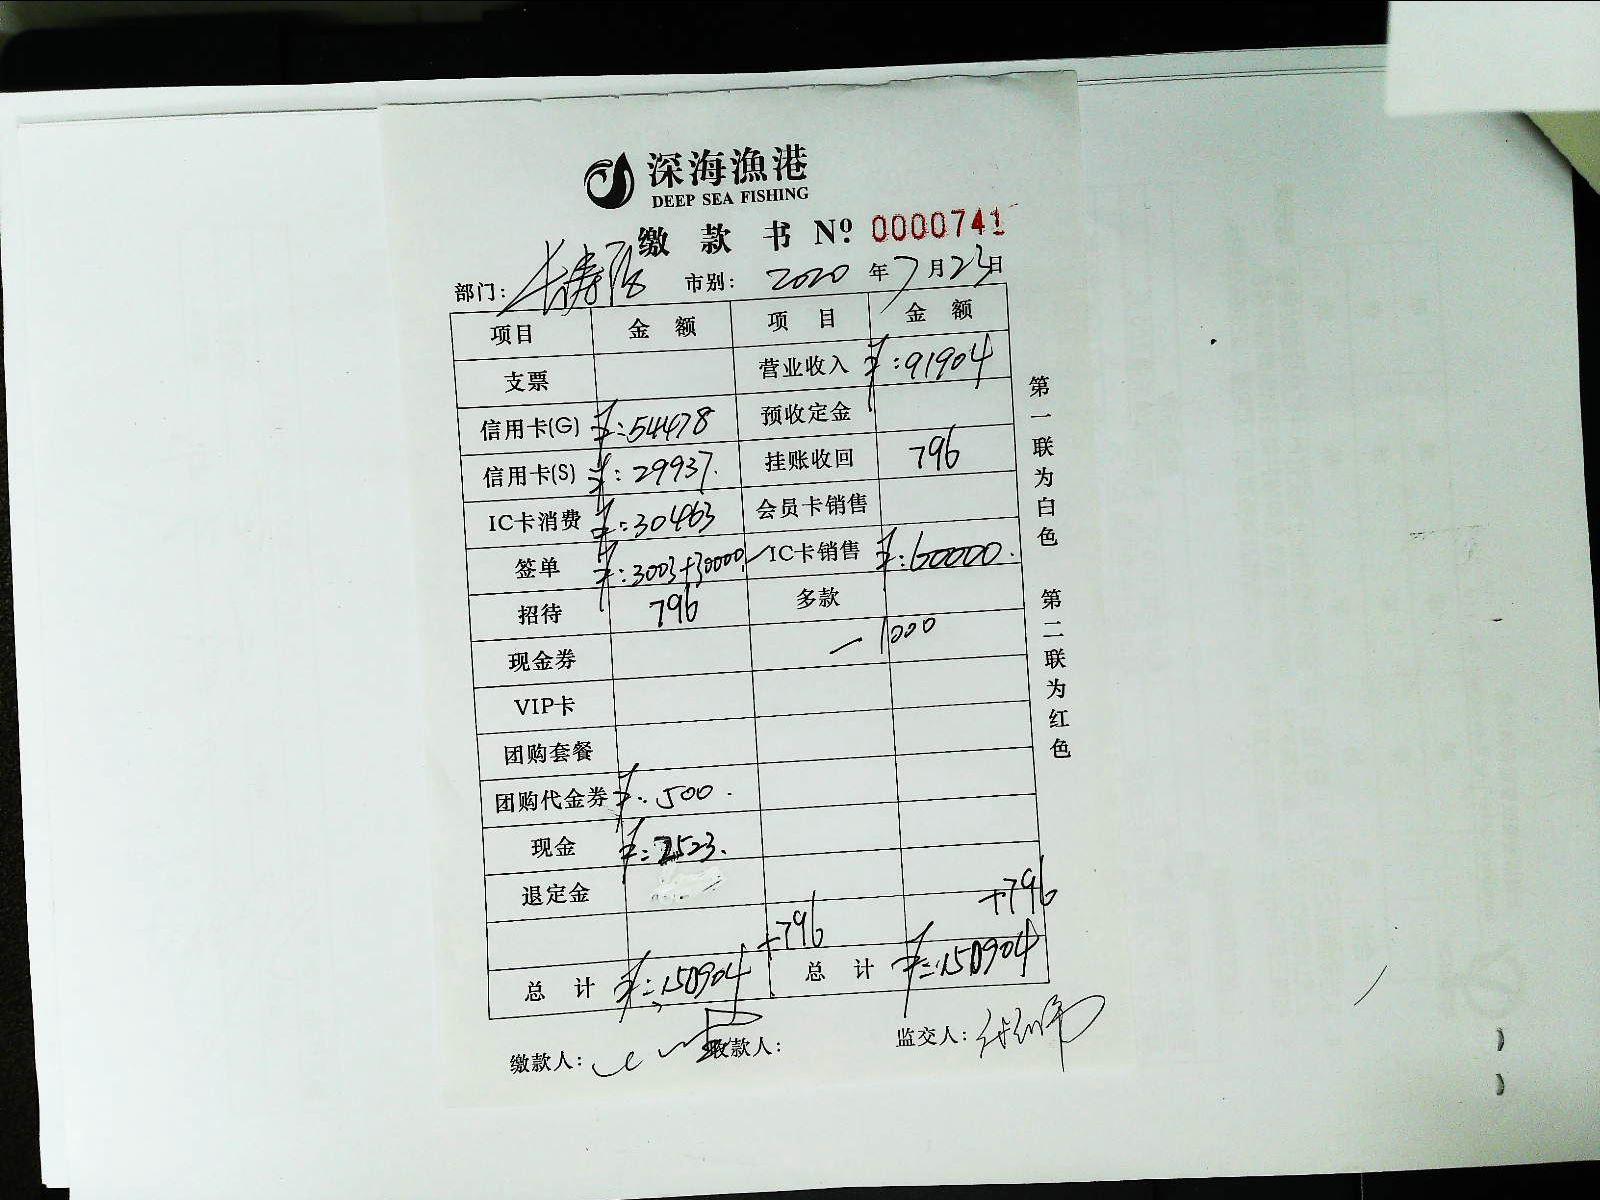 深海漁港
DEEP SEA FISHING
缴款书 Nº 0000741
部门：长寿路 市别： 2020年7月23日
项目 金额 项目 金额
支票 营业收入 ¥:91904
信用卡(G) ¥:54478 预收定金
信用卡(S) ¥:29937. 挂账收回 796
IC卡消费 ¥:30463 会员卡销售
签单 ¥:3003+30000 IC卡销售 ¥:60000.
招待 796 多款
现金券 -1000
VIP卡
团购套餐
团购代金券 ¥:500.
现金 ¥:2523.
退定金
+796 +796
总计 ¥:150904 总计 ¥:150904
缴款人： 收款人： 监交人：
第一联为白色 第二联为红色